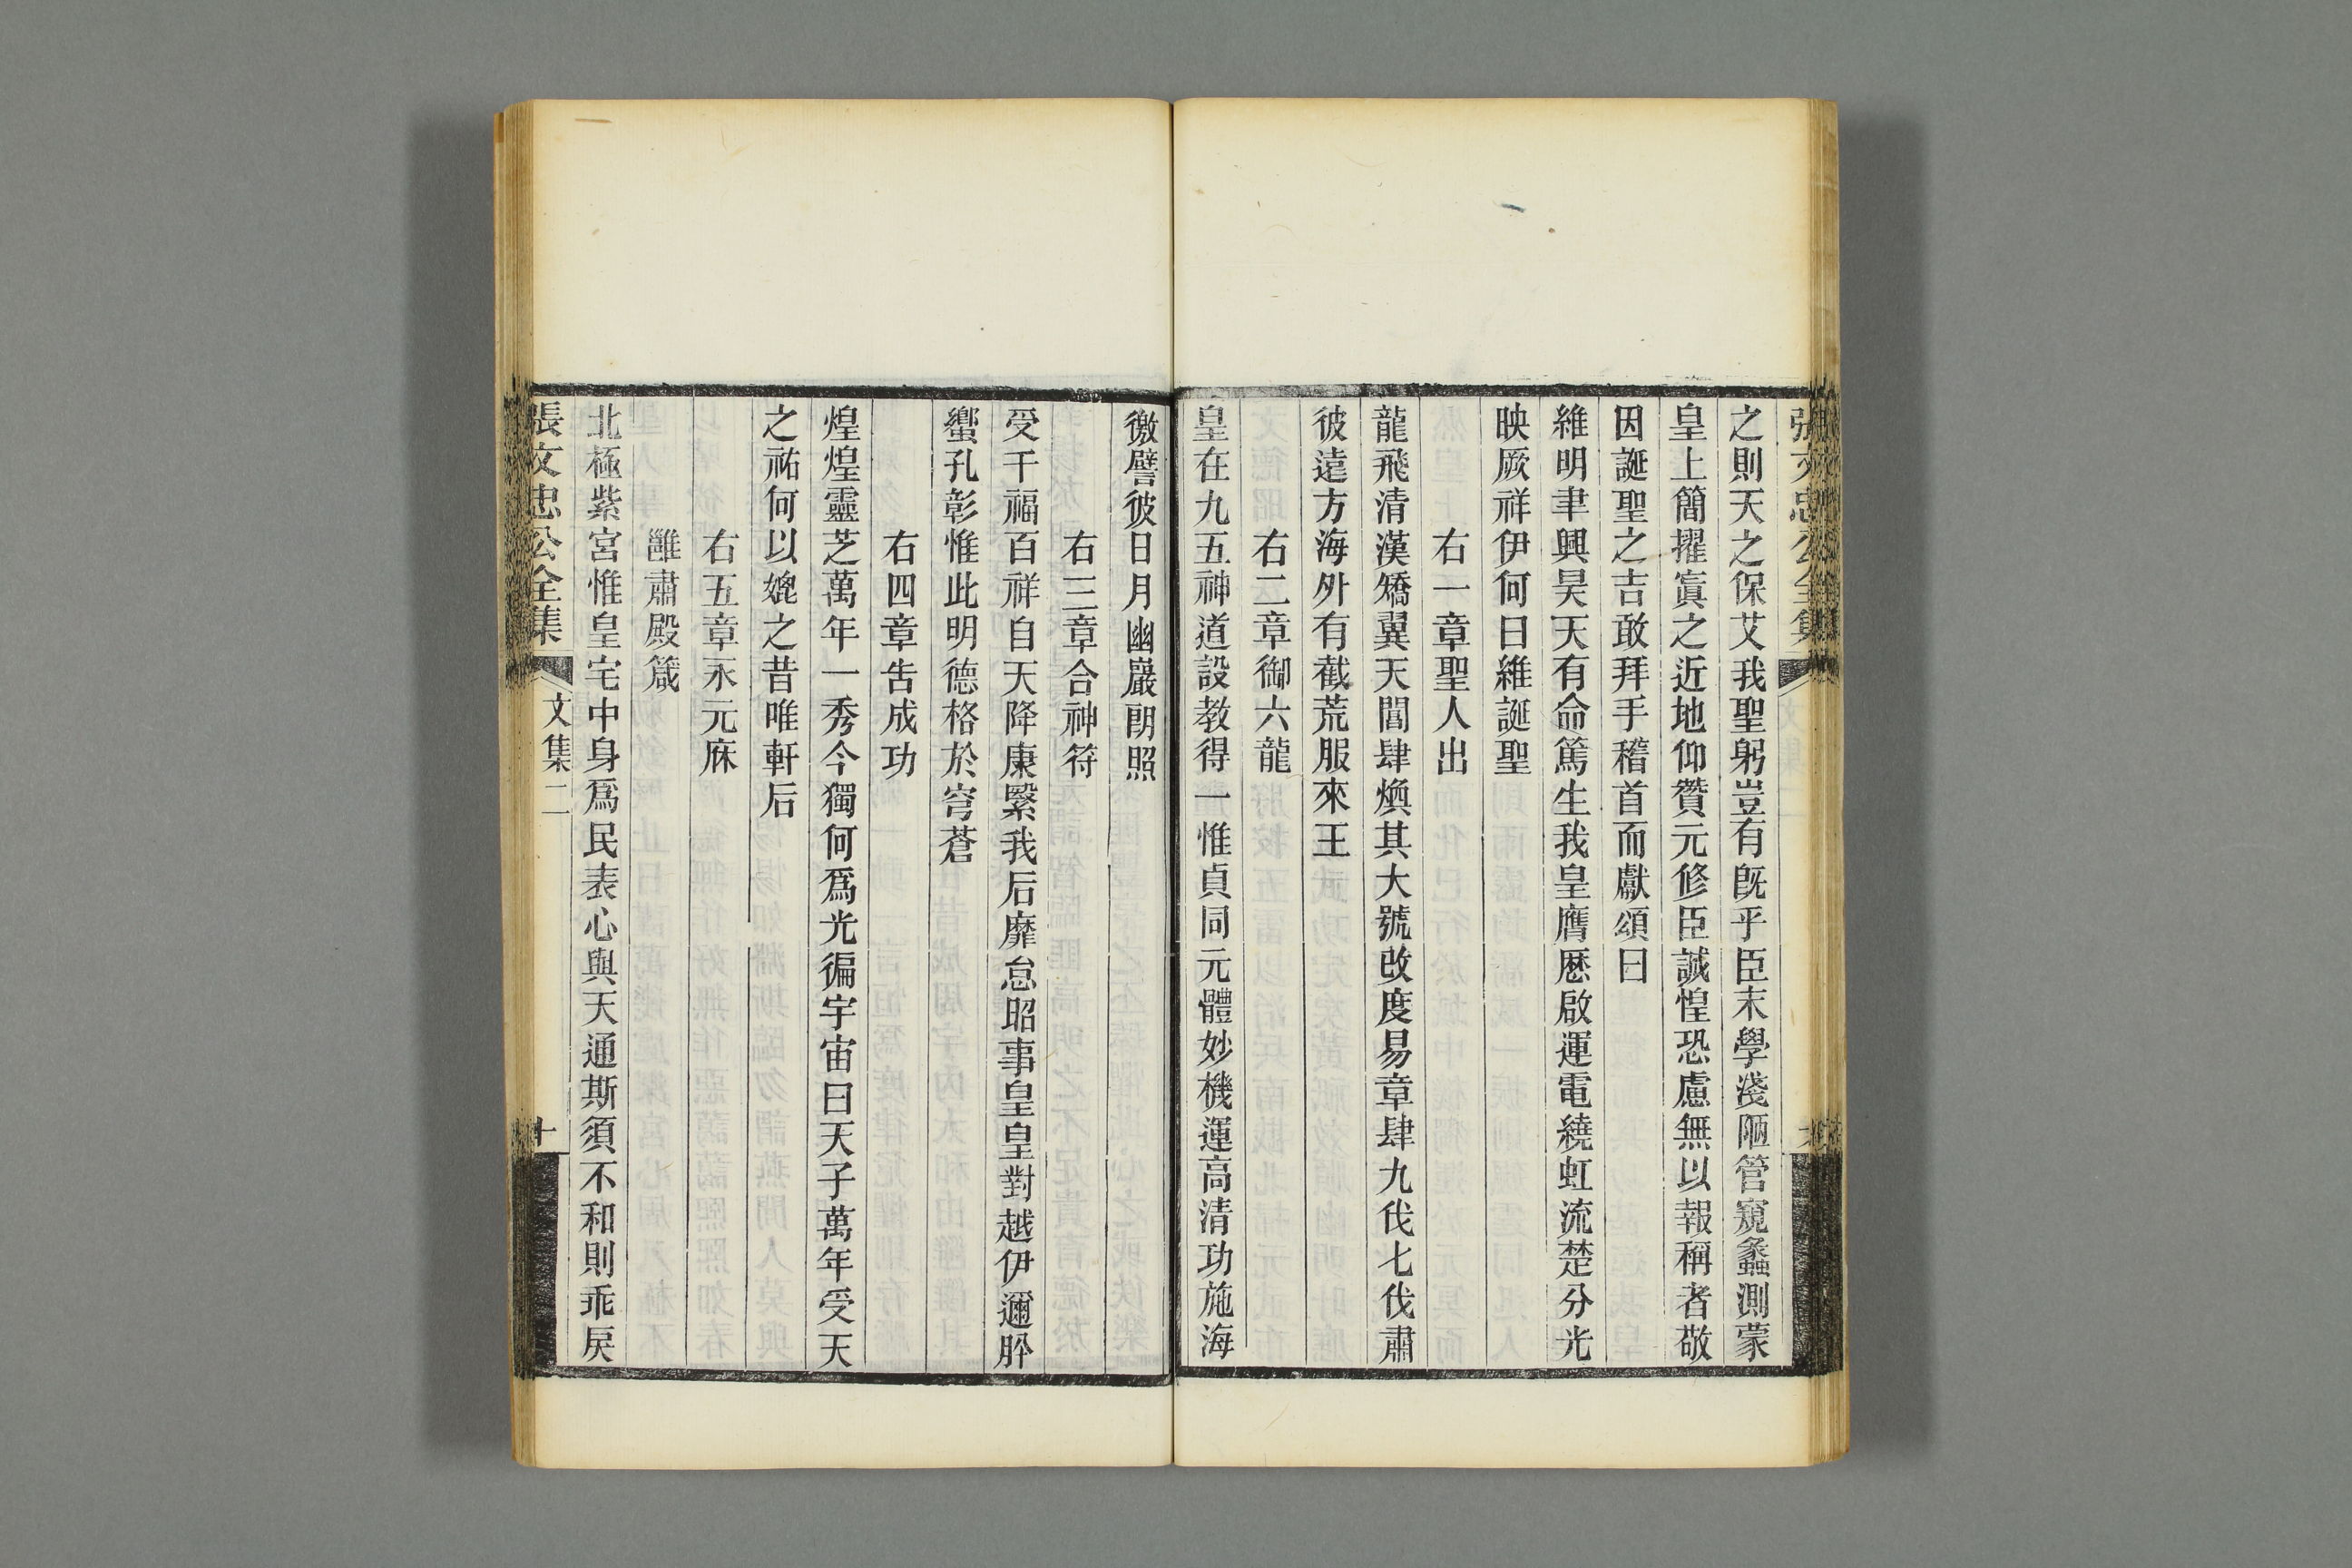 張文忠公全集
之則天之保艾我聖躬豈有旣乎臣末學淺陋管窺蠡測蒙
皇上簡擢寘之近地仰贊元修臣誠惶恐慮無以報稱者敬
因誕聖之吉敢拜手稽首而獻頌曰
維明聿興昊天有命篤生我皇膺厯啟運電繞虹流楚分光
映厥祥伊何曰維誕聖
右一章聖人出
龍飛清漢矯翼天閶肆煥其大號改度易章肆九伐七伐肅
彼遠方海外有截荒服來王
右二章御六龍
皇在九五神道設教得一惟貞同元體妙機運高清功施海
徼譬彼日月幽巖朗照
右三章合神符
受千福百祥自天降康繄我后靡怠昭事皇皇對越伊邇肸
蠁孔彰惟此明德格於穹蒼
右四章吿成功
煌煌靈芝萬年一秀今獨何爲光徧宇宙曰天子萬年受天
之祐何以媲之昔唯軒后
右五章永元庥
雝肅殿箴
北極紫宮惟皇宅中身爲民表心與天通斯須不和則乖戾
張文忠公全集 文集二 十